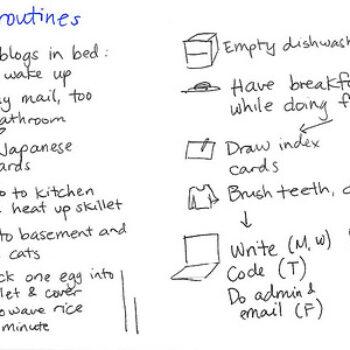 routines
blogs in bed:
wake up
mail, too
Japanese
to kitchen
heat up skillet
to basement and
cats
one egg into
& cover
wave rice
minute
Empty
Have
while doing
Draw index
cards
Brush teeth,
Write (M, W)
Code (T)
Do admin &
email (F)